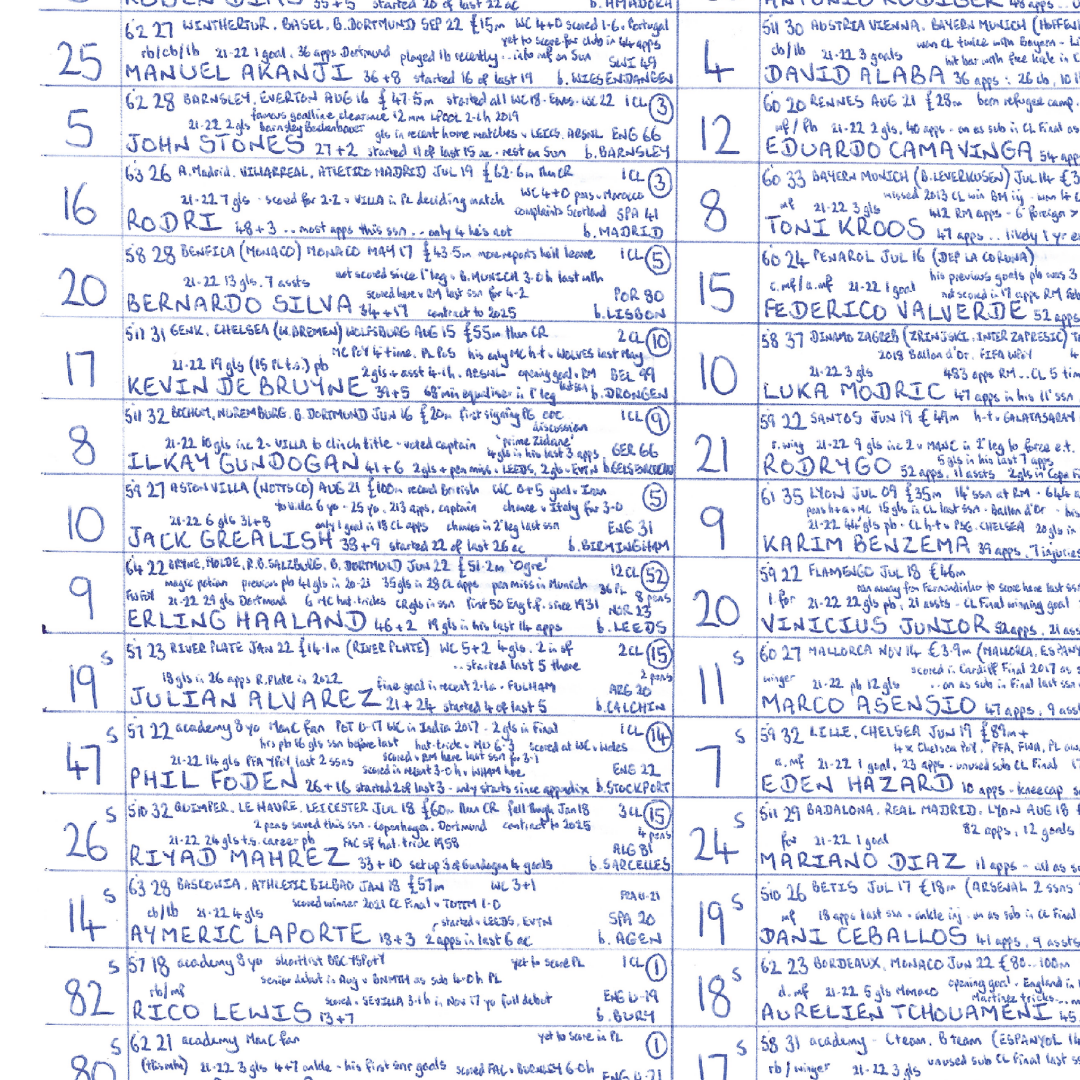 RUBEN DIAS 35+5 started 20 of last 22 ac b. AMADORA
25
62 27 WINTHERTUR. BASEL. B.DORTMUND SEP 22 £15m WC 4+0 scored 1-6. Portugal
yet to score for club in 44 apps
rb/cb/lb 21-22 1 goal. 36 apps Dortmund played lb recently .. into mf on Sun SWI 49
MANUEL AKANJI 36+8 started 16 of last 19 b. WIESENDANGEN
5
62 28 BARNSLEY. EVERTON AUG 16 £47.5m started all WC 18. Euros. WC 22 1CL 3
famous goalline clearance 12mm LPOOL 2-1h 2019
21-22 2gls Barnsley Beckenbauer gls in recent home matches v LEICS. ARSNL ENG 66
JOHN STONES 27+2 started 11 of last 15 ac - rest on Sun b. BARNSLEY
16
63 26 A.Madrid. VILLARREAL. ATLETICO MADRID JUL 19 £62.6m then CR 1CL 3
WC 4+0 pens v Morocco
21-22 7 gls - scored for 2-2 v VILLA in PL deciding match complaints Scotland SPA 41
RODRI 48+3 .. most apps this ssn .. only 4 he's not b. MADRID
20
58 28 BENFICA (MONACO) MONACO MAY 17 £43.5m more reports he'll leave 1CL 5
not scored since 1st leg v B.MUNICH 3-0h last mth
21-22 13 gls. 7 assts
scored here v RM last ssn for 4-2 POR 80
BERNARDO SILVA 34+17 contract to 2025 b. LISBON
17
511 31 GENK. CHELSEA (W.BREMEN) WOLFSBURG AUG 15 £55m then CR 2CL 10
MC PoY 4 time. PL PoS his only MC h-t v WOLVES last May
21-22 19 gls (15 PL t.s.) pb 2 gls + asst 4-1h. ARSNL opening goal v RM BEL 99
KEVIN DE BRUYNE 39+5 68 min equaliser in 1st leg b. DRONGEN
8
511 32 BOCHUM. NUREMBURG. B. DORTMUND JUN 16 £20m first signing PG 1CL 9
discussion
21-22 10 gls inc 2 v VILLA to clinch title - voted captain 'prime Zidane' GER 66
4gls in his last 3 apps
ILKAY GUNDOGAN 41+6 2 gls + pen miss v LEEDS. 2 gls v EVTN
10
59 27 ASTON VILLA (NOTTS CO) AUG 21 £100m record British WC 0+5 goal v Iran 5
to Villa 6 yo - 25 yo. 213 apps. captain chance v Italy for 3-0
21-22 6 gls 31+8 only 1 goal in 18 CL apps chances in 2nd leg last ssn ENG 31
JACK GREALISH 38+9 started 22 of last 26 ac b. BIRMINGHAM
9
64 22 BRYNE. MOLDE. R.B.SALZBURG. B. DORTMUND JUN 22 £51.2m 'Ogre' 12CL 52
magic potion previous pb 41 gls in 20-21 35 gls in 28 CL apps pen miss in Munich 36 PL 8 pens
21-22 29 gls Dortmund 6 MC hat-tricks first 50 Eng t.f. since 1931 NOR 23
ERLING HAALAND 46+2 19 gls in his last 14 apps b. LEEDS
19 S
57 23 RIVER PLATE JAN 22 £14.1m (RIVER PLATE) WC 5+2 4 gls. 2 in sf 2CL 15
.. started last 5 there 2 pens
18 gls in 26 apps R.Plate in 2022 fine goal in recent 2-1a v FULHAM ARG 20
JULIAN ALVAREZ 21+24 started 4 of last 5 b. CALCHIN
47 S
57 22 academy 8 yo ManC fan PoT U-17 WC in India 2017 - 2 gls in Final 1CL 14
his pb 16 gls ssn before last hat-trick v MU 6-3 scored at WC v Wales
21-22 14 gls PFA YPoY last 2 ssns scored v RM here last ssn for 3-1
scored in recent 3-0h v WHAM here ENG 22
PHIL FODEN 26+16 started 2 of last 3 - only starts since appendix b. STOCKPORT
26 S
510 32 QUIMPER. LE HAVRE. LEICESTER JUL 18 £60m then CR fell though Jan 18 3CL 15
2 pens saved this ssn - Copenhagen. Dortmund contract to 2025 4 pens
21-22 24 gls t.s. career pb FAC sf hat-trick 1958 ALG 81
RIYAD MAHREZ 33+10 set up 3 of Gundogan 4 goals b. SARCELLES
14 S
63 28 BASCONIA. ATHLETIC BILBAO JAN 18 £57m WC 3+1 FRA U-21
scored winner 2021 CC Final v TOTTM 1-0
cb/lb 21-22 4 gls started v LEEDS. EVTN SPA 20
AYMERIC LAPORTE 18+3 2 apps in last 6 ac b. AGEN
82 S
57 18 academy 8 yo shortlist BBC YSPoTY yet to score PL 1CL 1
senior debut in Aug v BNMTH as sub 4-0h PL
rb/mf scored v SEVILLA 3-1h in Nov 17 yo full debut ENG U-19
RICO LEWIS 13+7 b. BURY
80 S
62 21 academy ManC fan yet to score in PL 1
21-22 3 gls 4+7 ankle - his first snr goals scored FAC v BURNLEY 6-0h ENG U-21
4
511 30 AUSTRIA VIENNA. BAYERN MUNICH (HOFFEN
won CL twice with Bayern
cb/lb 21-22 3 goals hit bar with free kick in
DAVID ALABA 36 apps: 26 cb. 10 l
12
60 20 RENNES AUG 21 £28m born refugee camp.
mf/lb 21-22 2 gls. 40 apps - on as sub in CL Final as
EDUARDO CAMAVINGA 54 app
8
60 33 BAYERN MUNICH (B.LEVERKUSEN) JUL 14
missed 2013 CL win BM inj - won 4
mf 21-22 3 gls 412 RM apps - 6th foreign >
TONI KROOS 47 apps .. likely 1 yr e
15
60 24 PENAROL JUL 16 (DEP LA CORUNA)
his previous goals pb was 3
c.mf/a.mf 21-22 1 goal not scored in 17 apps RM Feb
FEDERICO VALVERDE 52 apps
10
58 37 DINAMO ZAGREB (ZRINJSKI. INTER ZAPRESIC)
2018 Ballon d'Or. FIFA WPoY
21-22 3 gls 483 apps RM .. CL 5 tim
LUKA MODRIC 47 apps in his 11th ssn
21
59 22 SANTOS JUN 19 £49m h-t v GALATASARAY
r.wing 21-22 9 gls inc 2 v MANC in 2nd leg to force e.t.
5 gls in his last 7 apps
RODRYGO 52 apps. 11 assts 2 gls in Copa F
9
61 35 LYON JUL 09 £35m 14th ssn at RM - 646 a
pens h+a v MC 15 gls in CL last ssn - Ballon d'Or - his
21-22 44 gls pb - CL h-t v PSG. CHELSEA 20 gls in
KARIM BENZEMA 39 apps. 7 injuries
20
59 22 FLAMENGO JUL 18 £46m
ran away from Fernandinho to score here last ssn
l.for 21-22 22 gls pb. 21 assts - CL Final winning goal
VINICIUS JUNIOR 52 apps. 21 ass
11 S
60 27 MALLORCA NOV 14 €3.9m (MALLORCA. ESPANY
scored in Cardiff Final 2017 as s
winger 21-22 pb 12 gls .. on as sub in Final last ssn
MARCO ASENSIO 47 apps. 9 asst
7 S
59 32 LILLE. CHELSEA JUN 19 £89m+
4 x Chelsea PoY. PFA. FWA. PL aw
a.mf 21-22 1 goal. 23 apps - unused sub CL Final
EDEN HAZARD 10 apps - kneecap s
24 S
511 29 BADALONA. REAL MADRID. LYON AUG 18
82 apps. 12 goals
for 21-22 1 goal
MARIANO DIAZ 11 apps - all as s
19 S
510 26 BETIS JUL 17 €18m (ARSENAL 2 ssns
mf 18 apps last ssn - ankle inj - on as sub in CL Final
DANI CEBALLOS 41 apps. 9 assts
18 S
62 23 BORDEAUX. MONACO JUN 22 €80..100m
opening goal v England in
d.mf 21-22 5 gls Monaco Martinez tricks...m
AURELIEN TCHOUAMENI 45
17 S
58 31 academy - C team. B team (ESPANYOL 14
unused sub CL Final last ss
rb/winger 21-22 3 gls